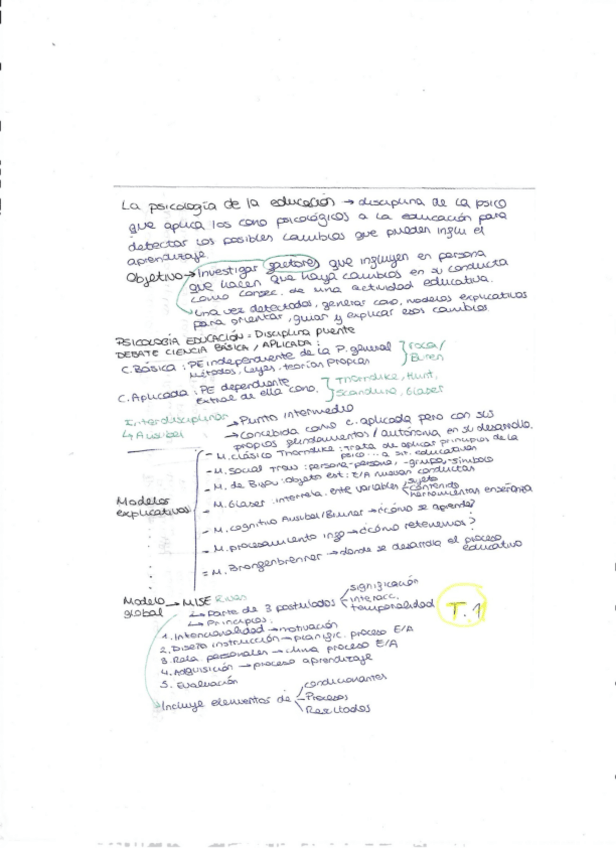 La psicología de la educación → disciplina de la psico
que aplica los cono psicológicos a la educación para
detectar los posibles cambios que pueden influ el
aprendizaje.
Objetivo → Investigar factores que influyen en persona
que hacen que haya cambios en su conducta
como consec. de una actividad educativa.
Una vez detectados, generar cono, modelos explicativos
para orientar, guiar y explicar esos cambios
PSICOLOGÍA EDUCACIÓN = Disciplina puente
DEBATE CIENCIA BÁSICA / APLICADA:
C. Básica: PE independiente de la P. general } Coca/
métodos, leyes, teorías propias } Buren
C. Aplicada: PE dependiente { Thorndike, Hunt,
extrae de ella cono. { Scandura, Glaser
Interdisciplinar → Punto intermedio
↳ Ausubel → Concebida como c. aplicada pero con sus
propios fundamentos / autónoma en su desarrollo.
Modelos explicativos
- M. clásico Thorndike: trata de aplicar principios de la
psico ... a sit. educativas
- M. Social Trow: persona-persona, -grupo, -símbolo
- M. de Bijou: objeto est: E/A nuevas conductas
- M. Glaser: interrela. entre variables sujeto
contenido
herramientas enseñanza
- M. cognitivo Ausubel/Bruner → ¿cómo se aprende?
- M. procesamiento info → ¿cómo retenemos?
= M. Brongenbrenner → donde se desarrolla el proceso
educativo
Modelo global → MISE Rivas
↳ Parte de 3 postulados significación
interacc.
temporalidad
T.1
↳ Principios:
1. Intencionalidad → motivación
2. Diseño instrucción → planific. proceso E/A
3. Rela personales → clima proceso E/A
4. Adquisición → proceso aprendizaje
5. Evaluación
Incluye elementos de condicionantes
Procesos
Resultados